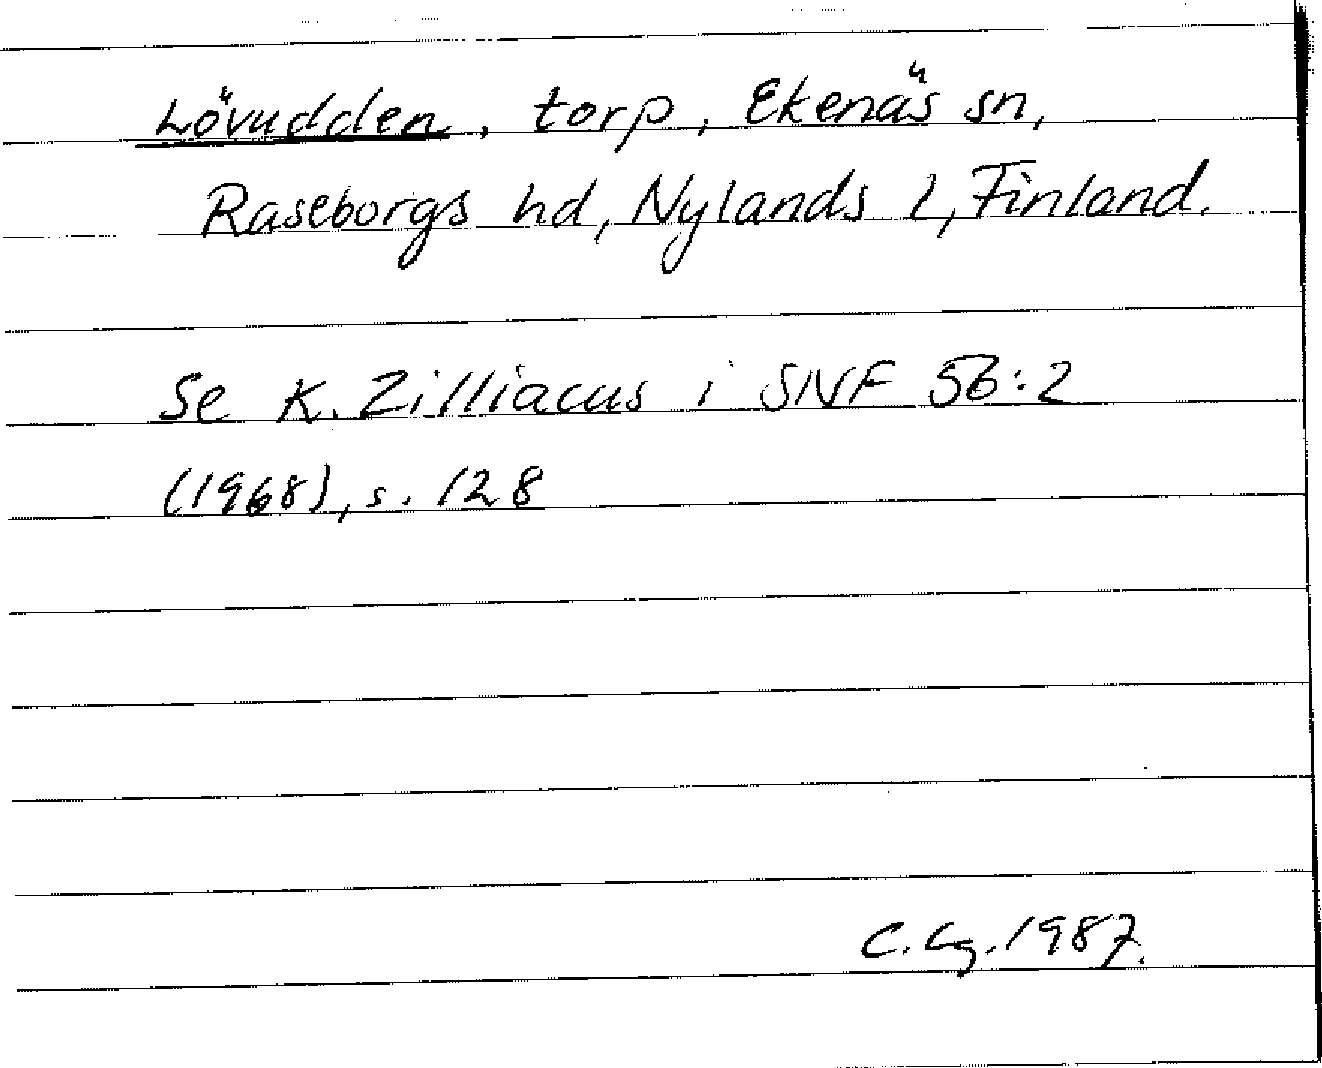 Lövudden, torp, Ekenäs sn,
Raseborgs hd, Nylands l, Finland.
Se K. Zilliacus i SNF 56:2
(1968), s. 128
C. Cg. 1987.